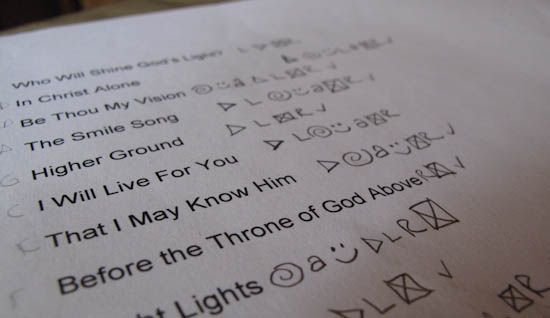 Who Will Shine God's Light?
In Christ Alone
Be Thou My Vision a L R ✓
The Smile Song L a R ✓
Higher Ground L R ✓
I Will Live For You L a R ✓
That I May Know Him a R ✓
Before the Throne of God Above R ✓
ht Lights a L R
L ✓
R